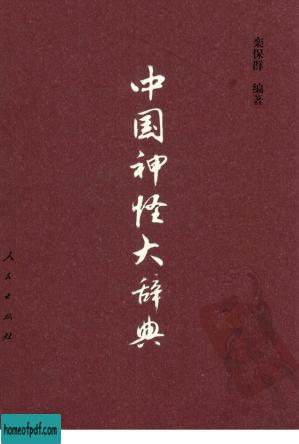 栾保群 编著
中国神怪大辞典
人民出版社
homeofpdf.com